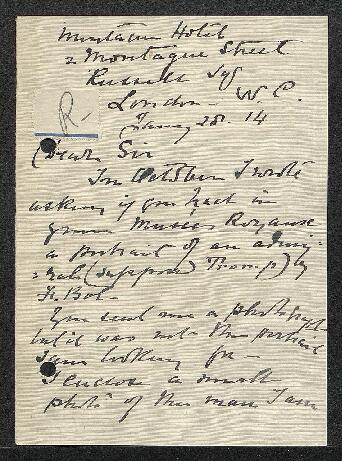 Montague Hotel
2 Montague Street
Russell Sqs
London - W. C.
R-
Jany 28. 14
Dear Sir
In October I wrote
asking if you had in
your Musée Royause
a portrait of an admi=
=ral (supposed Tromp) by
F. Bol-
You sent me a photograph
but it was not the portrait
I am looking for -
I enclose a small
photo of the man I am